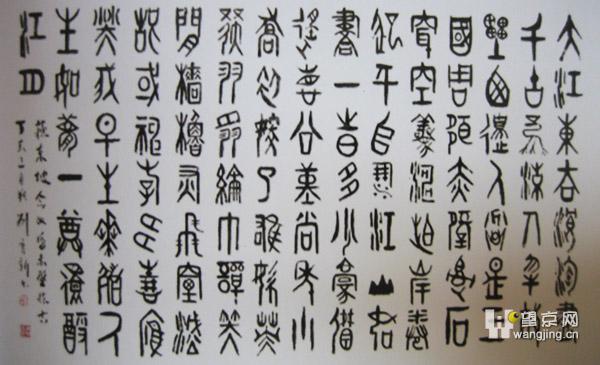 大江東去浪淘盡
千古風流人物故
壘西邊人道是三
國周郎赤壁亂石
穿空驚濤拍岸捲
起千堆雪江山如
畫一時多少豪傑
遙想公瑾當年小
喬初嫁了雄姿英
發羽扇綸巾談笑
間檣櫓灰飛煙滅
故國神遊多情應
笑我早生華髮人
生如夢一尊還酹
江月
蘇東坡念奴嬌赤壁懷古
望京网
wangjing.cn